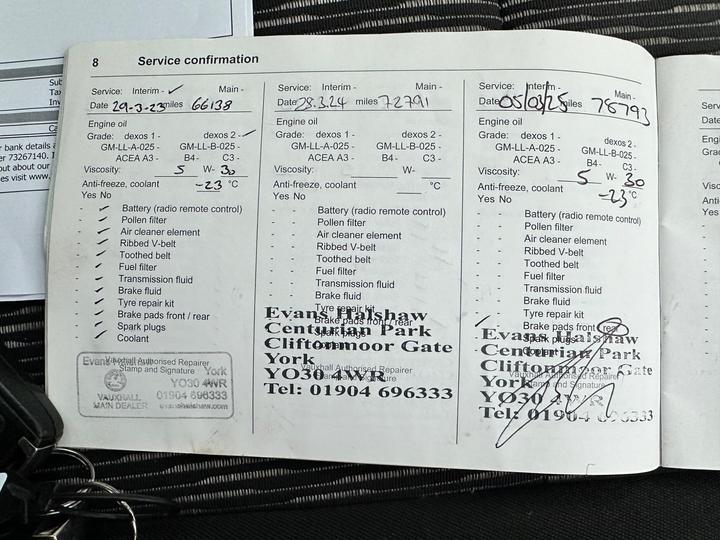 8 Service confirmation
Service: Interim - ✓ Main -
Date 29-3-23 miles 66138
Engine oil
Grade: dexos 1 - dexos 2 - ✓
GM-LL-A-025 - GM-LL-B-025 -
ACEA A3 - B4- C3 -
Viscosity: 5 W- 30
Anti-freeze, coolant -23 °C
Yes No
- ✓ Battery (radio remote control)
- ✓ Pollen filter
- ✓ Air cleaner element
- ✓ Ribbed V-belt
- ✓ Toothed belt
- ✓ Fuel filter
- ✓ Transmission fluid
- ✓ Brake fluid
- ✓ Tyre repair kit
- ✓ Brake pads front / rear
- ✓ Spark plugs
- ✓ Coolant
Vauxhall Authorised Repairer
Stamp and Signature
York
YO30 4WR
VAUXHALL 01904 696333
MAIN DEALER evanshalshaw.com
Service: Interim - Main -
Date 28.3.24 miles 72791
Engine oil
Grade: dexos 1 - dexos 2 -
GM-LL-A-025 - GM-LL-B-025 -
ACEA A3 - B4- C3 -
Viscosity: W-
Anti-freeze, coolant °C
Yes No
- - Battery (radio remote control)
- - Pollen filter
- - Air cleaner element
- - Ribbed V-belt
- - Toothed belt
- - Fuel filter
- - Transmission fluid
- - Brake fluid
Tyre repair kit
Evans Halshaw
Brake pads front / rear
Centurian Park
Spark plugs
Cliftonmoor Gate
York
Vauxhall Authorised Repairer
YO30 4WR
Tel: 01904 696333
Service: Interim - Main -
Date 05/03/25 miles 78793
Engine oil
Grade: dexos 1 - dexos 2 -
GM-LL-A-025 - GM-LL-B-025 -
ACEA A3 - B4- C3 -
Viscosity: 5 W- 30
Anti-freeze, coolant -23 °C
Yes No
- - Battery (radio remote control)
- - Pollen filter
- - Air cleaner element
- - Ribbed V-belt
- - Toothed belt
- - Fuel filter
- - Transmission fluid
- - Brake fluid
- - Tyre repair kit
✓ - Brake pads front / rear
Evans Halshaw
Spark plugs
Centurian Park
Cliftonmoor Gate
Vauxhall Authorised Repairer
York
Stamp and Signature
YO30 4WR
Tel: 01904 696333